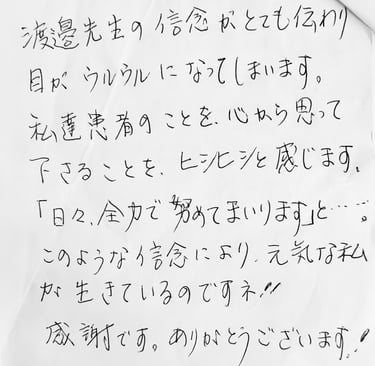 渡邉先生の信念がとても伝わり
目がウルウルになってしまいます。
私達患者のことを、心から思って
下さることを、ヒシヒシと感じます。
「日々、全力で努めてまいります」と……。
このような信念により、元気な私
が生きているのですネ!!
感謝です。ありがとうございます!!